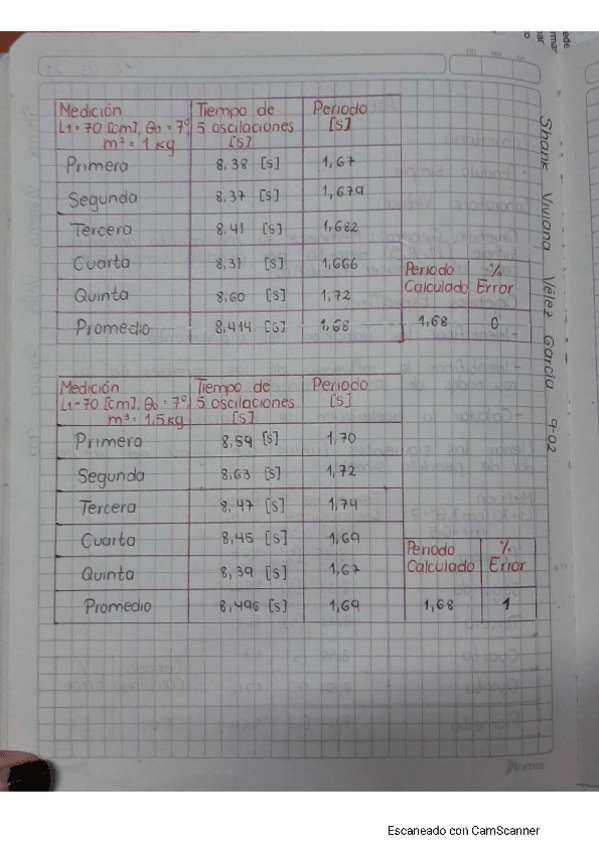 Medición Tiempo de Periodo
L1 = 70 [cm], θo = 7° 5 oscilaciones [s]
m² = 1 kg [s]
Primera 8,38 [s] 1,67
Segunda 8,37 [s] 1,679
Tercera 8,41 [s] 1,682
Cuarta 8,31 [s] 1,666
Quinta 8,60 [s] 1,72
Promedio 8,414 [s] 1,68
Periodo %
Calculado Error
1,68 0
Medición Tiempo de Periodo
L1 = 70 [cm], θo = 7° 5 oscilaciones [s]
m³ = 1,5 kg [s]
Primera 8,54 [s] 1,70
Segunda 8,63 [s] 1,72
Tercera 8,47 [s] 1,74
Cuarta 8,45 [s] 1,69
Quinta 8,39 [s] 1,67
Promedio 8,496 [s] 1,69
Periodo %
Calculado Error
1,68 1
Viviana Vélez García 9-02
Escaneado con CamScanner